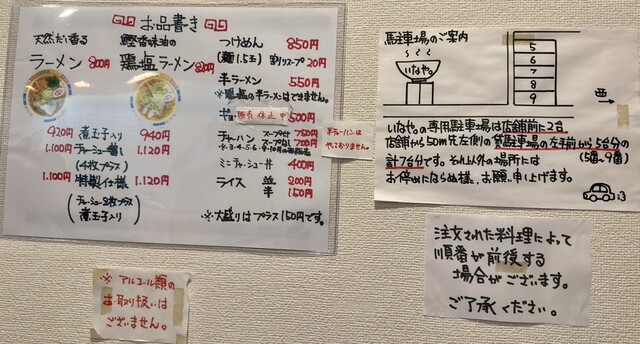 お品書き
天然だし香る
ラーメン 800円
鰹香味油の
鶏塩ラーメン 820円
920円 煮玉子入り 940円
1.100円 チャーシュー増し 1.120円
(4枚プラス)
1.100円 特製仕様 1.120円
(チャーシュー2枚プラス
煮玉子入り)
つけめん 850円
(麺1.5玉) 割りスープ20円
半ラーメン 550円
※鶏塩の半ラーメンはできません。
販売休止中 500円
チャーハン スープ付き 750円
700円
半チャーハンは
やっておりません。
ミニチャーシュー丼 400円
ライス 並 200円
半 150円
※大盛りはプラス150円です。
※アルコール類の
お取り扱いは
ございません。
馬駐車場のご案内
いなや。
5
6
7
8
9
西
いなや。の専用駐車場は店舗前に2台
店舗から50m先左側の貸駐車場の左手前から5台分の
計7台分です。それ以外の場所には (5番〜9番)
お停めにならぬ様に、お願い申し上げます。
注文された料理によって
順番が前後する
場合がございます。
ご了承ください。